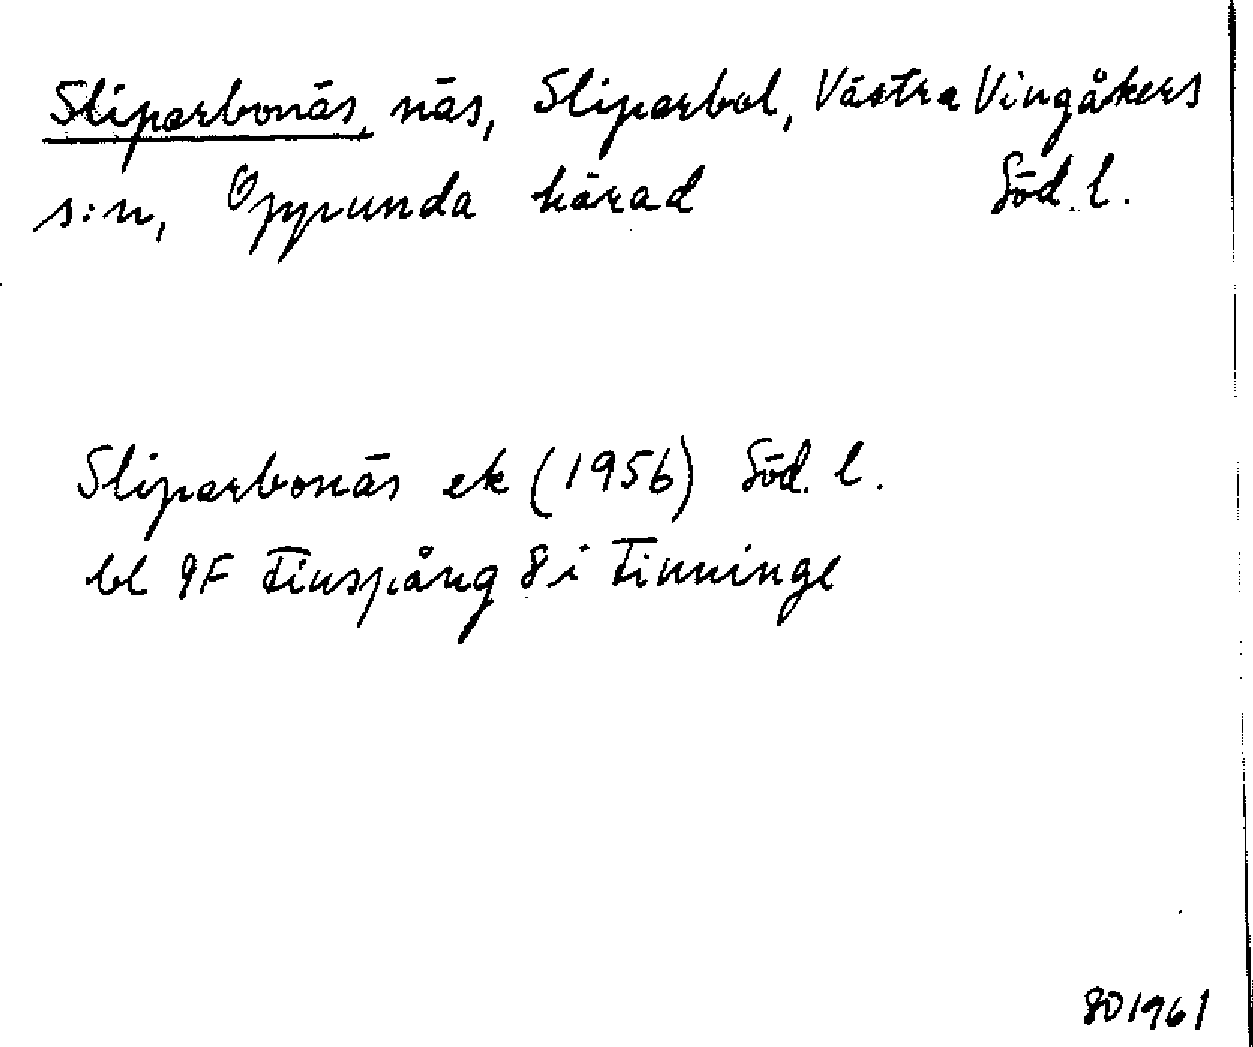 Sliparbonäs, näs, Sliparbol, Västra Vingåkers
s:n, Oppunda härad Söd. l.
Sliparbonäs ek (1956) Söd. l.
bl 9F Finspång 8 i Finninge
801961